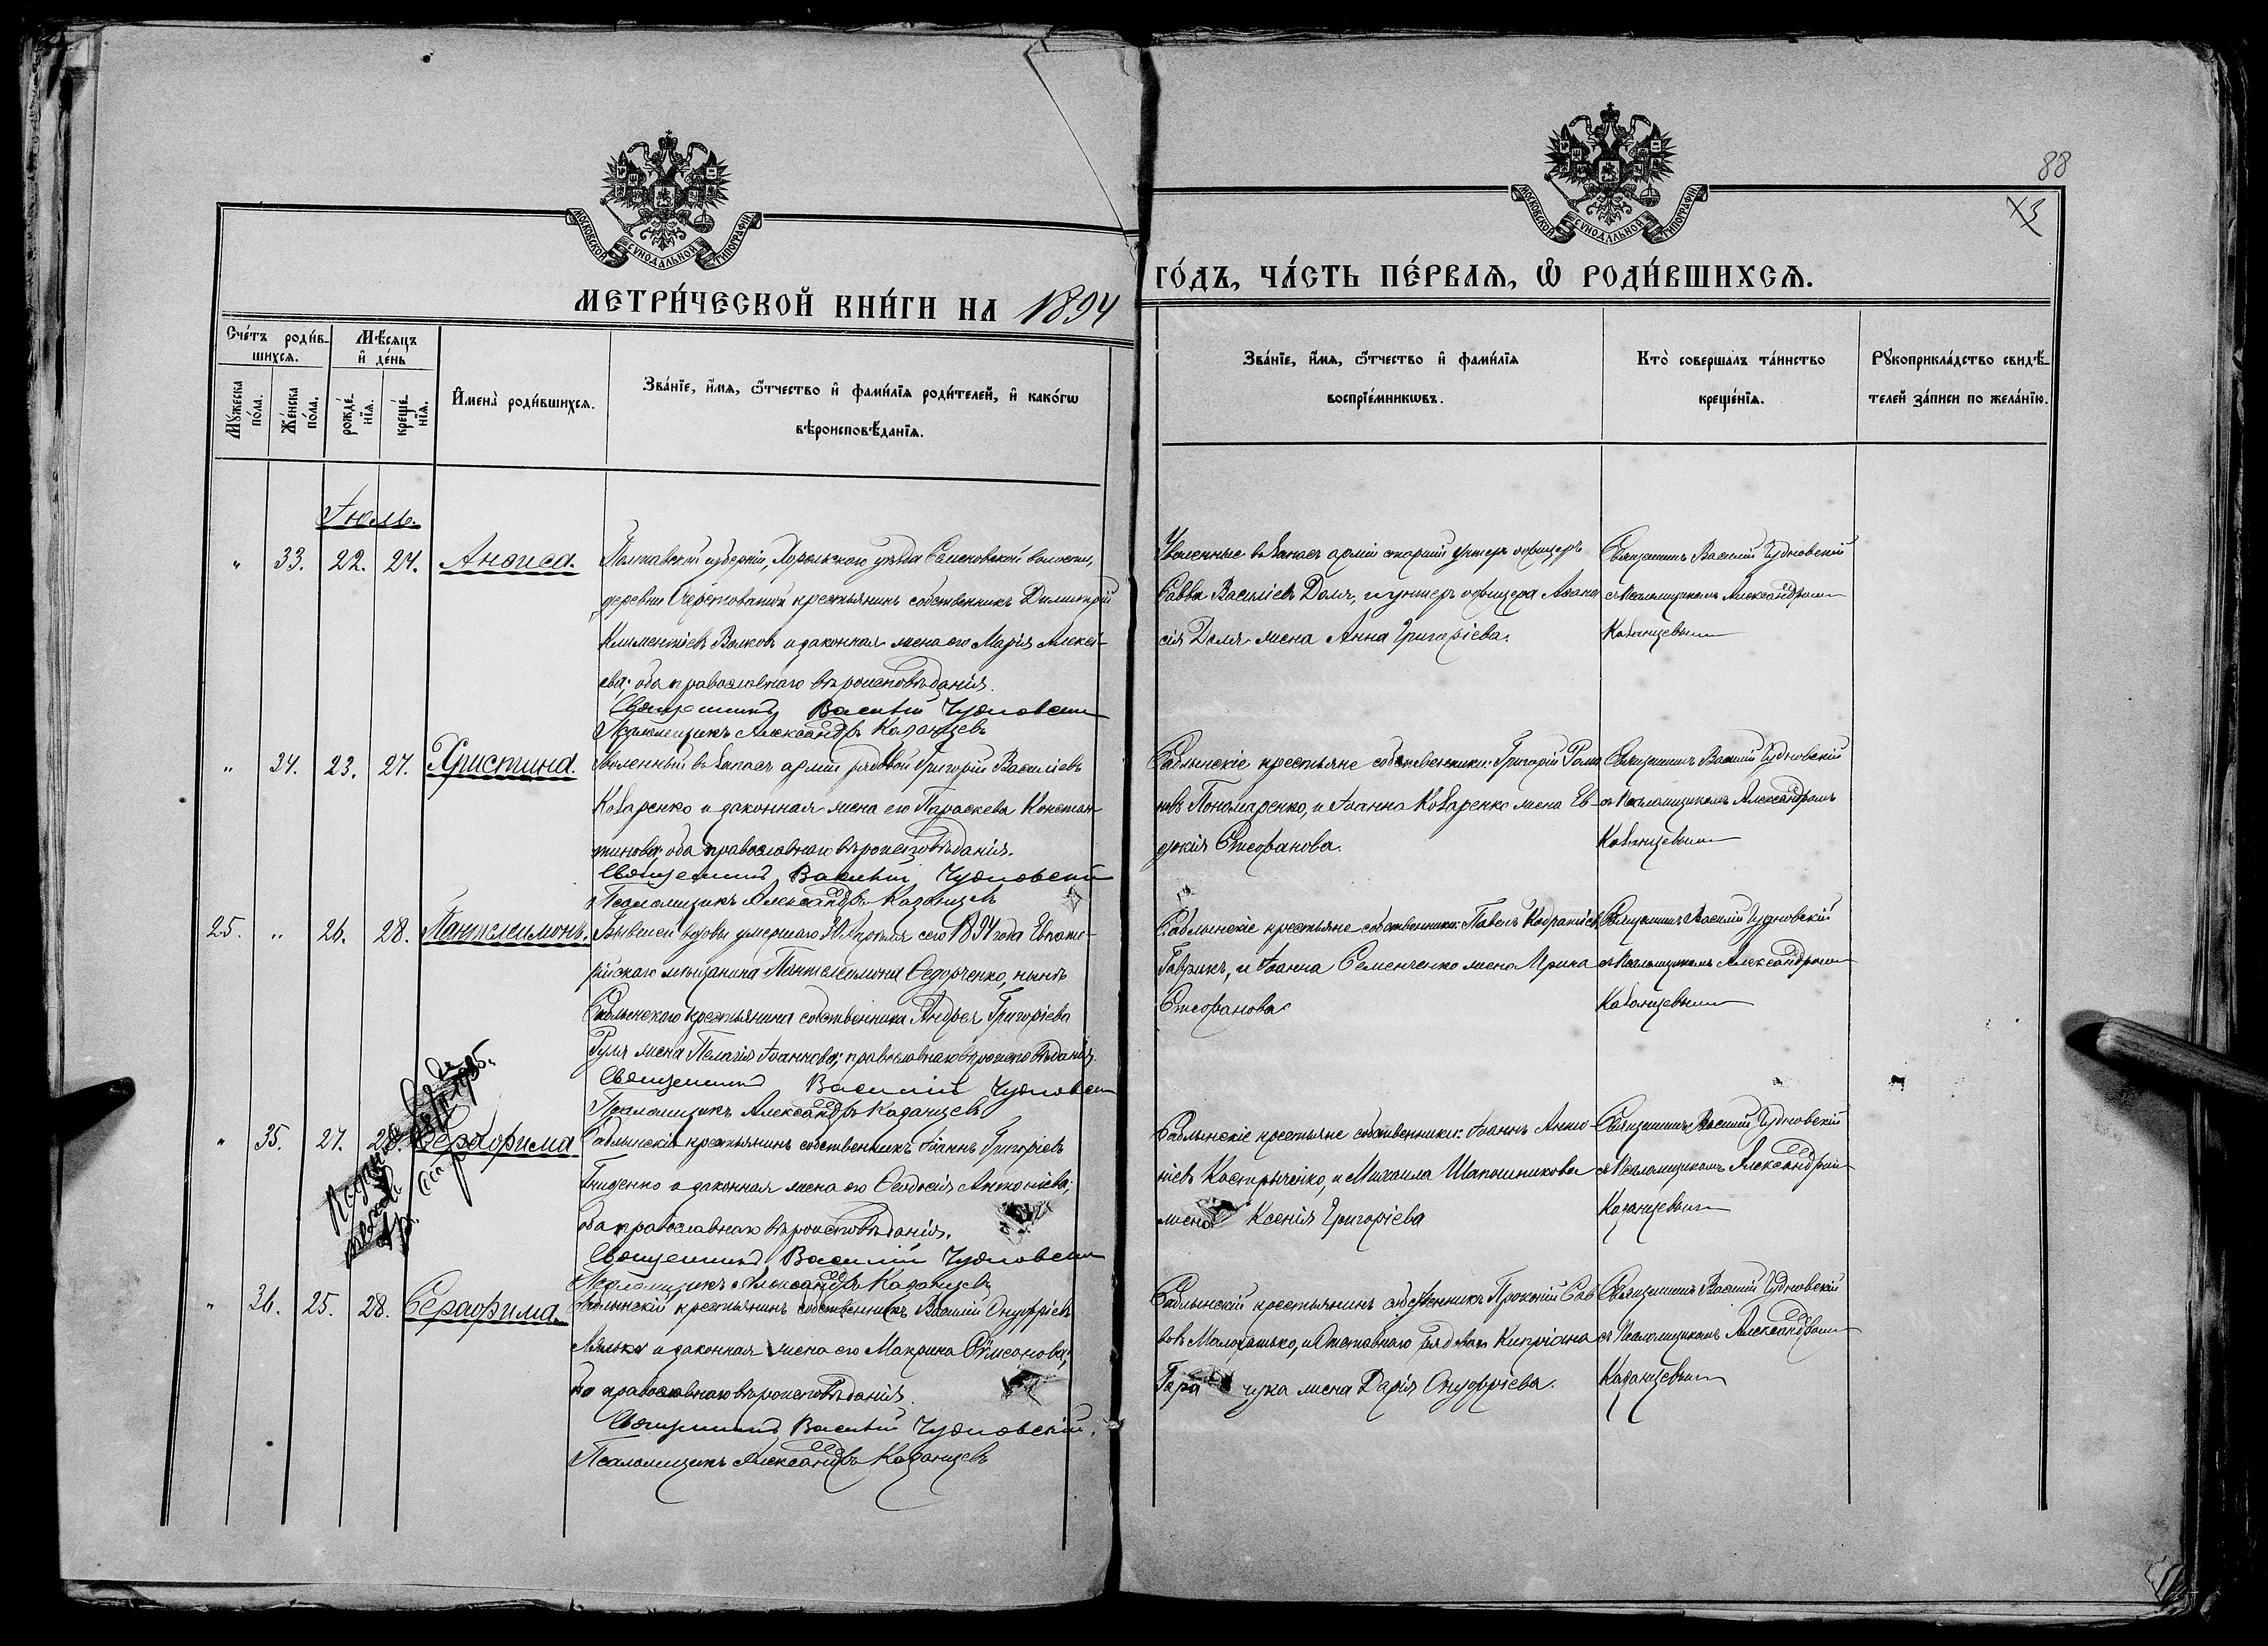 88
МОСКОВСКОЙ СѴНОДАЛЬНОЙ ТИПОГРАФІИ
МОСКОВСКОЙ СѴНОДАЛЬНОЙ ТИПОГРАФІИ
МЕТРИ́ЧЕСКОЙ КНИ́ГИ НА 1894
ГО́ДЪ, ЧА́СТЬ ПЕ́РВАѦ, Ѡ҆ РОДИ́ВШИХСѦ.
Сче́тъ роди́в-
шихсѧ.
Мѣ́сѧцъ
и҆ де́нь
Мꙋ́жеска
по́ла.
Же́нска
по́ла.
рожде́-
нїѧ.
креще́-
нїѧ.
И҆мена̀ роди́вшихсѧ.
Зва́нїе, и҆́мѧ, ѻ҆́тчество и҆ фами́лїѧ роди́телей, и҆ како́гѡ
вѣроисповѣ́данїѧ.
Зва́нїе, и҆́мѧ, ѻ҆́тчество и҆ фами́лїѧ
воспрїе́мникѡвъ.
Кто̀ соверша́лъ та́инство
креще́нїѧ.
Рꙋкоприкла́дство свидѣ́-
телей за́писи по жела́нїю.
Іюль.
" 33. 22. 24. Анѳиса.
Полтавской губерніи, Хорольскаго уѣзда волости,
деревни крестьянинъ собственникъ Димитрій
Климентіевъ Волковъ и законная жена его Марія Алексі-
ева; оба православнаго вѣроисповѣданія.
Священникъ Василій Чудновскій
Псаломщикъ Александръ Казанцевъ
Уволенные въ запасъ арміи старшій унтеръ офицеръ
Савва Василіевъ Доля, и унтеръ офицера Аѳана
сія Доля жена Анна Григоріева.
Священникъ Василій Чудновскій
съ Псаломщикомъ Александромъ
Казанцевымъ
" 34. 23. 27. Христина.
Уволенный въ запасъ арміи рядовой Григорій Василіевъ
Коваренко и законная жена его Параскева Констан-
тинова; оба православнаго вѣроисповѣданія.
Священникъ Василій Чудновскій
Псаломщикъ Александръ Казанцевъ
Саблынскіе крестьяне собственники: Григорій Рома
новъ Пономаренко, и Іоанна Коваренко жена Ев-
докія Стефанова.
Священникъ Василій Чудновскій
съ Псаломщикомъ Александромъ
Казанцевымъ
25. " 26. 28. Пантелеимонъ.
Бывшей вдовы умершаго 30 Апрѣля сего 1894 года Евпато-
рійскаго мѣщанина Пантелеймона Ѳедорченко, нынѣ
Саблынскаго крестьянина собственника Андрея Григоріева
жена Пелагія Іоаннова; православнаго вѣроисповѣданія.
Священникъ Василій Чудновскій
Псаломщикъ Александръ Казанцевъ
Саблынскіе крестьяне собственники: Павелъ Кодратіевъ
Гаврикъ, и Іоанна Семенченко жена Ирина
Стефанова
Священникъ Василій Чудновскій
съ Псаломщикомъ Александромъ
Казанцевымъ
" 35. 27. 28. Серафима
Саблынскій крестьянинъ собственникъ Іоаннъ Григоріевъ
Гниденко и законная жена его Ѳеодосія Антоніева;
оба православнаго вѣроисповѣданія.
Священникъ Василій Чудновскій
Псаломщикъ Александръ Казанцевъ
Саблынскіе крестьяне собственники: Іоаннъ Анто-
ніевъ Кастырченко, и Михаила Шапошникова
жена Ксенія Григоріева
Священникъ Василій Чудновскій
съ Псаломщикомъ Александромъ
Казанцевымъ
" 36. 25. 28. Серафима.
Саблынскій крестьянинъ собственникъ Василій Онуфріевъ
и законная жена его Макрина
оба православнаго вѣроисповѣданія.
Священникъ Василій Чудновскій.
Псаломщикъ Александръ Казанцевъ
Саблынскій крестьянинъ собственникъ Прокопій Сав
вовъ и Отставнаго рядоваго Кипріана
жена Дарія Онуфріева.
Священникъ Василій Чудновскій
съ Псаломщикомъ Александромъ
Казанцевымъ